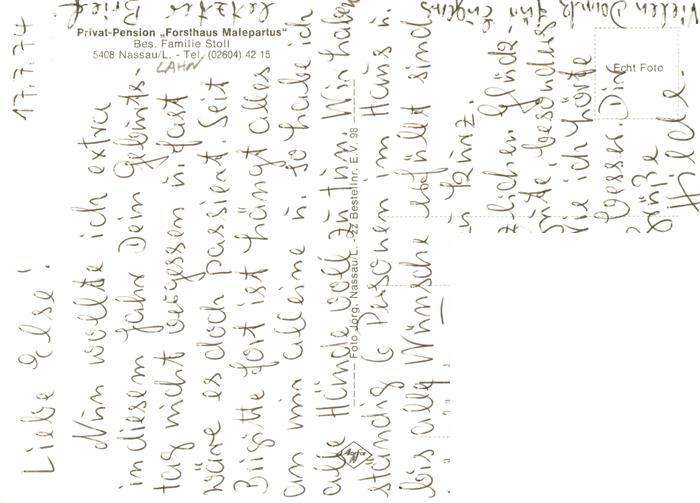 Privat-Pension „Forsthaus Malepartus"
Bes. Familie Stoll
5408 Nassau/L. - Tel. (02604) 42 15
LAHN
Echt Foto
Foto Jörg, Nassau/L. - 22 Bestellnr. E.V. 98
Agfa
17.7.74
Liebe Else!
Nun wollte ich extra
in diesem Jahr Dein Geburts-
tag nicht vergessen u. fast
wäre es doch passiert. Seit
Brigitte fort ist hängt alles
an mir alleine u. so habe ich
alle Hände voll zu tun. Wir haben
ständig 6 Personen im Haus u.
bis alle Wünsche erfüllt sind
in 12
lichen Glück-
besonders
wie ich hörte
besser. Din
Grüße
Hilde.
Vielen Dank für Euren
letzten Brief